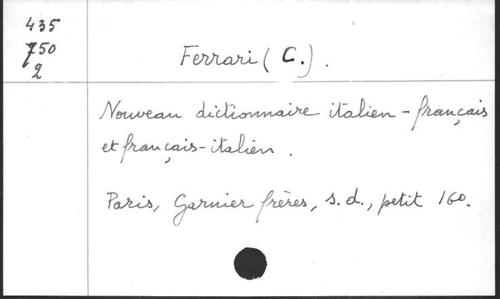 435
750
2
Ferrari (C.).
Nouveau dictionnaire italien-français
et français-italien.
Paris, Garnier frères, s.d., petit 16o.